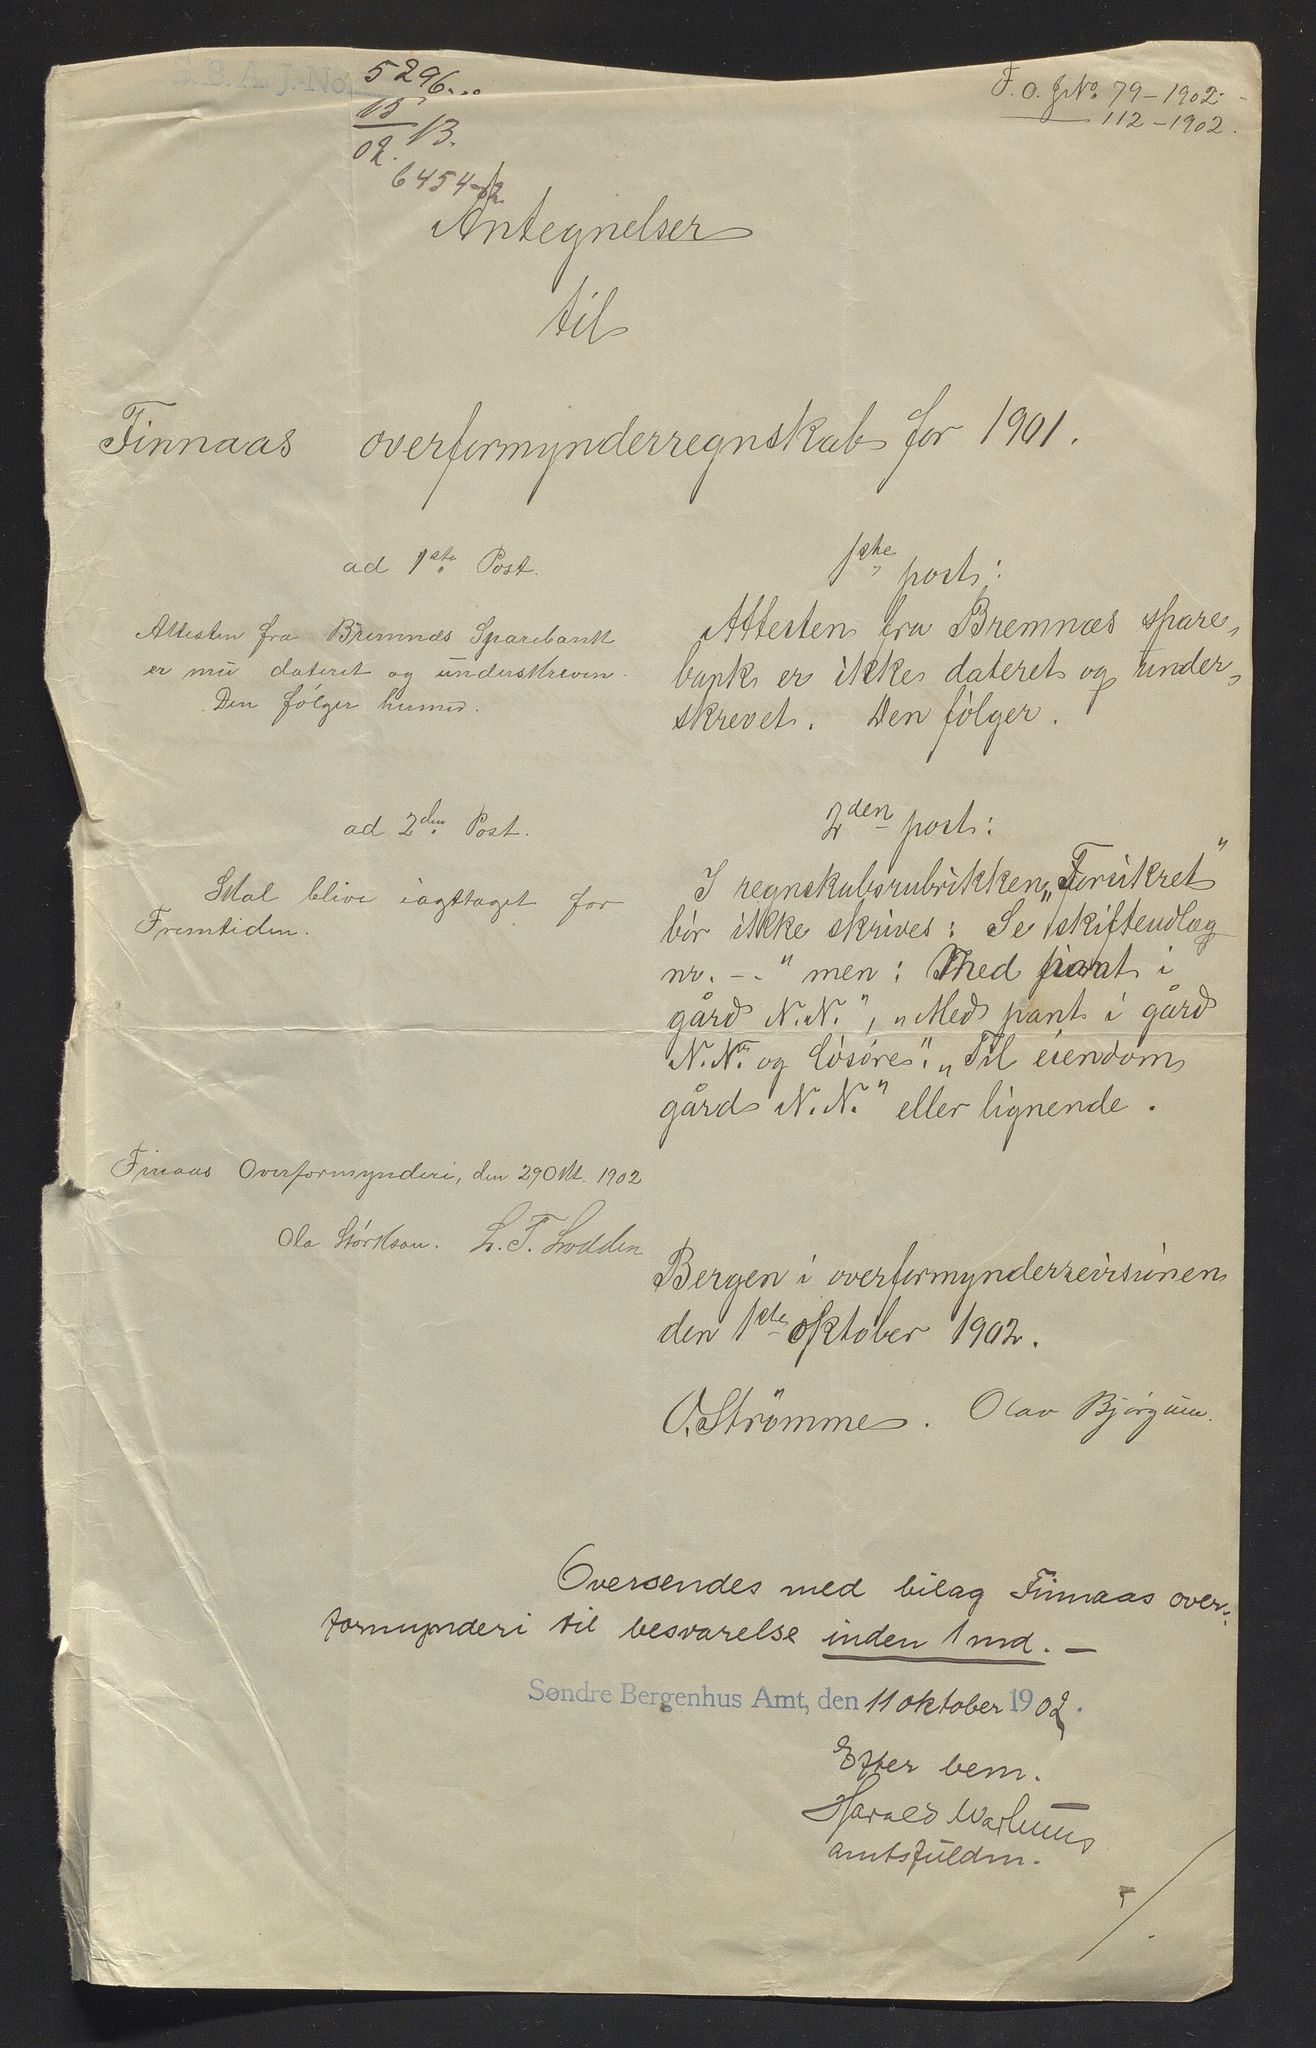 S.B.A. J.-No. 5296
15
02. B.
6454-02
F. O. JNo. 79-1902.
112-1902.
Antegnelser
til
Finnaas overformynderregnskab for 1901.
ad 1ste Post.
Attesten fra Bremnæs Sparebank
er nu dateret og underskreven.
Den følger hermed.
ad 2den Post.
Skal blive iagttaget for
Fremtiden.
Finaas Overformynderi, den 29 Okt. 1902
Ola Størkson. L. T. Lodden
1ste post:
Attesten fra Bremnæs spare-
bank er ikke dateret og under-
skrevet. Den følger.
2den post:
I regnskabsrubrikken „Forsikret"
bör ikke skrives: Se „skifteudlæg
nr. -." men: Med pant i
gård N.N.", „Med pant i gård
N.N. og lösöre". „Til eiendom
gård N.N." eller lignende.
Bergen i overformynderrevisionen
den 1ste oktober 1902.
O. Strömme. Olav Bjørgum.
Oversendes med bilag Finnaas over-
formynderi til besvarelse inden 1 md. —
Søndre Bergenhus Amt, den 11 oktober 1902.
Efter bem.
Harald
amtsfuldm.